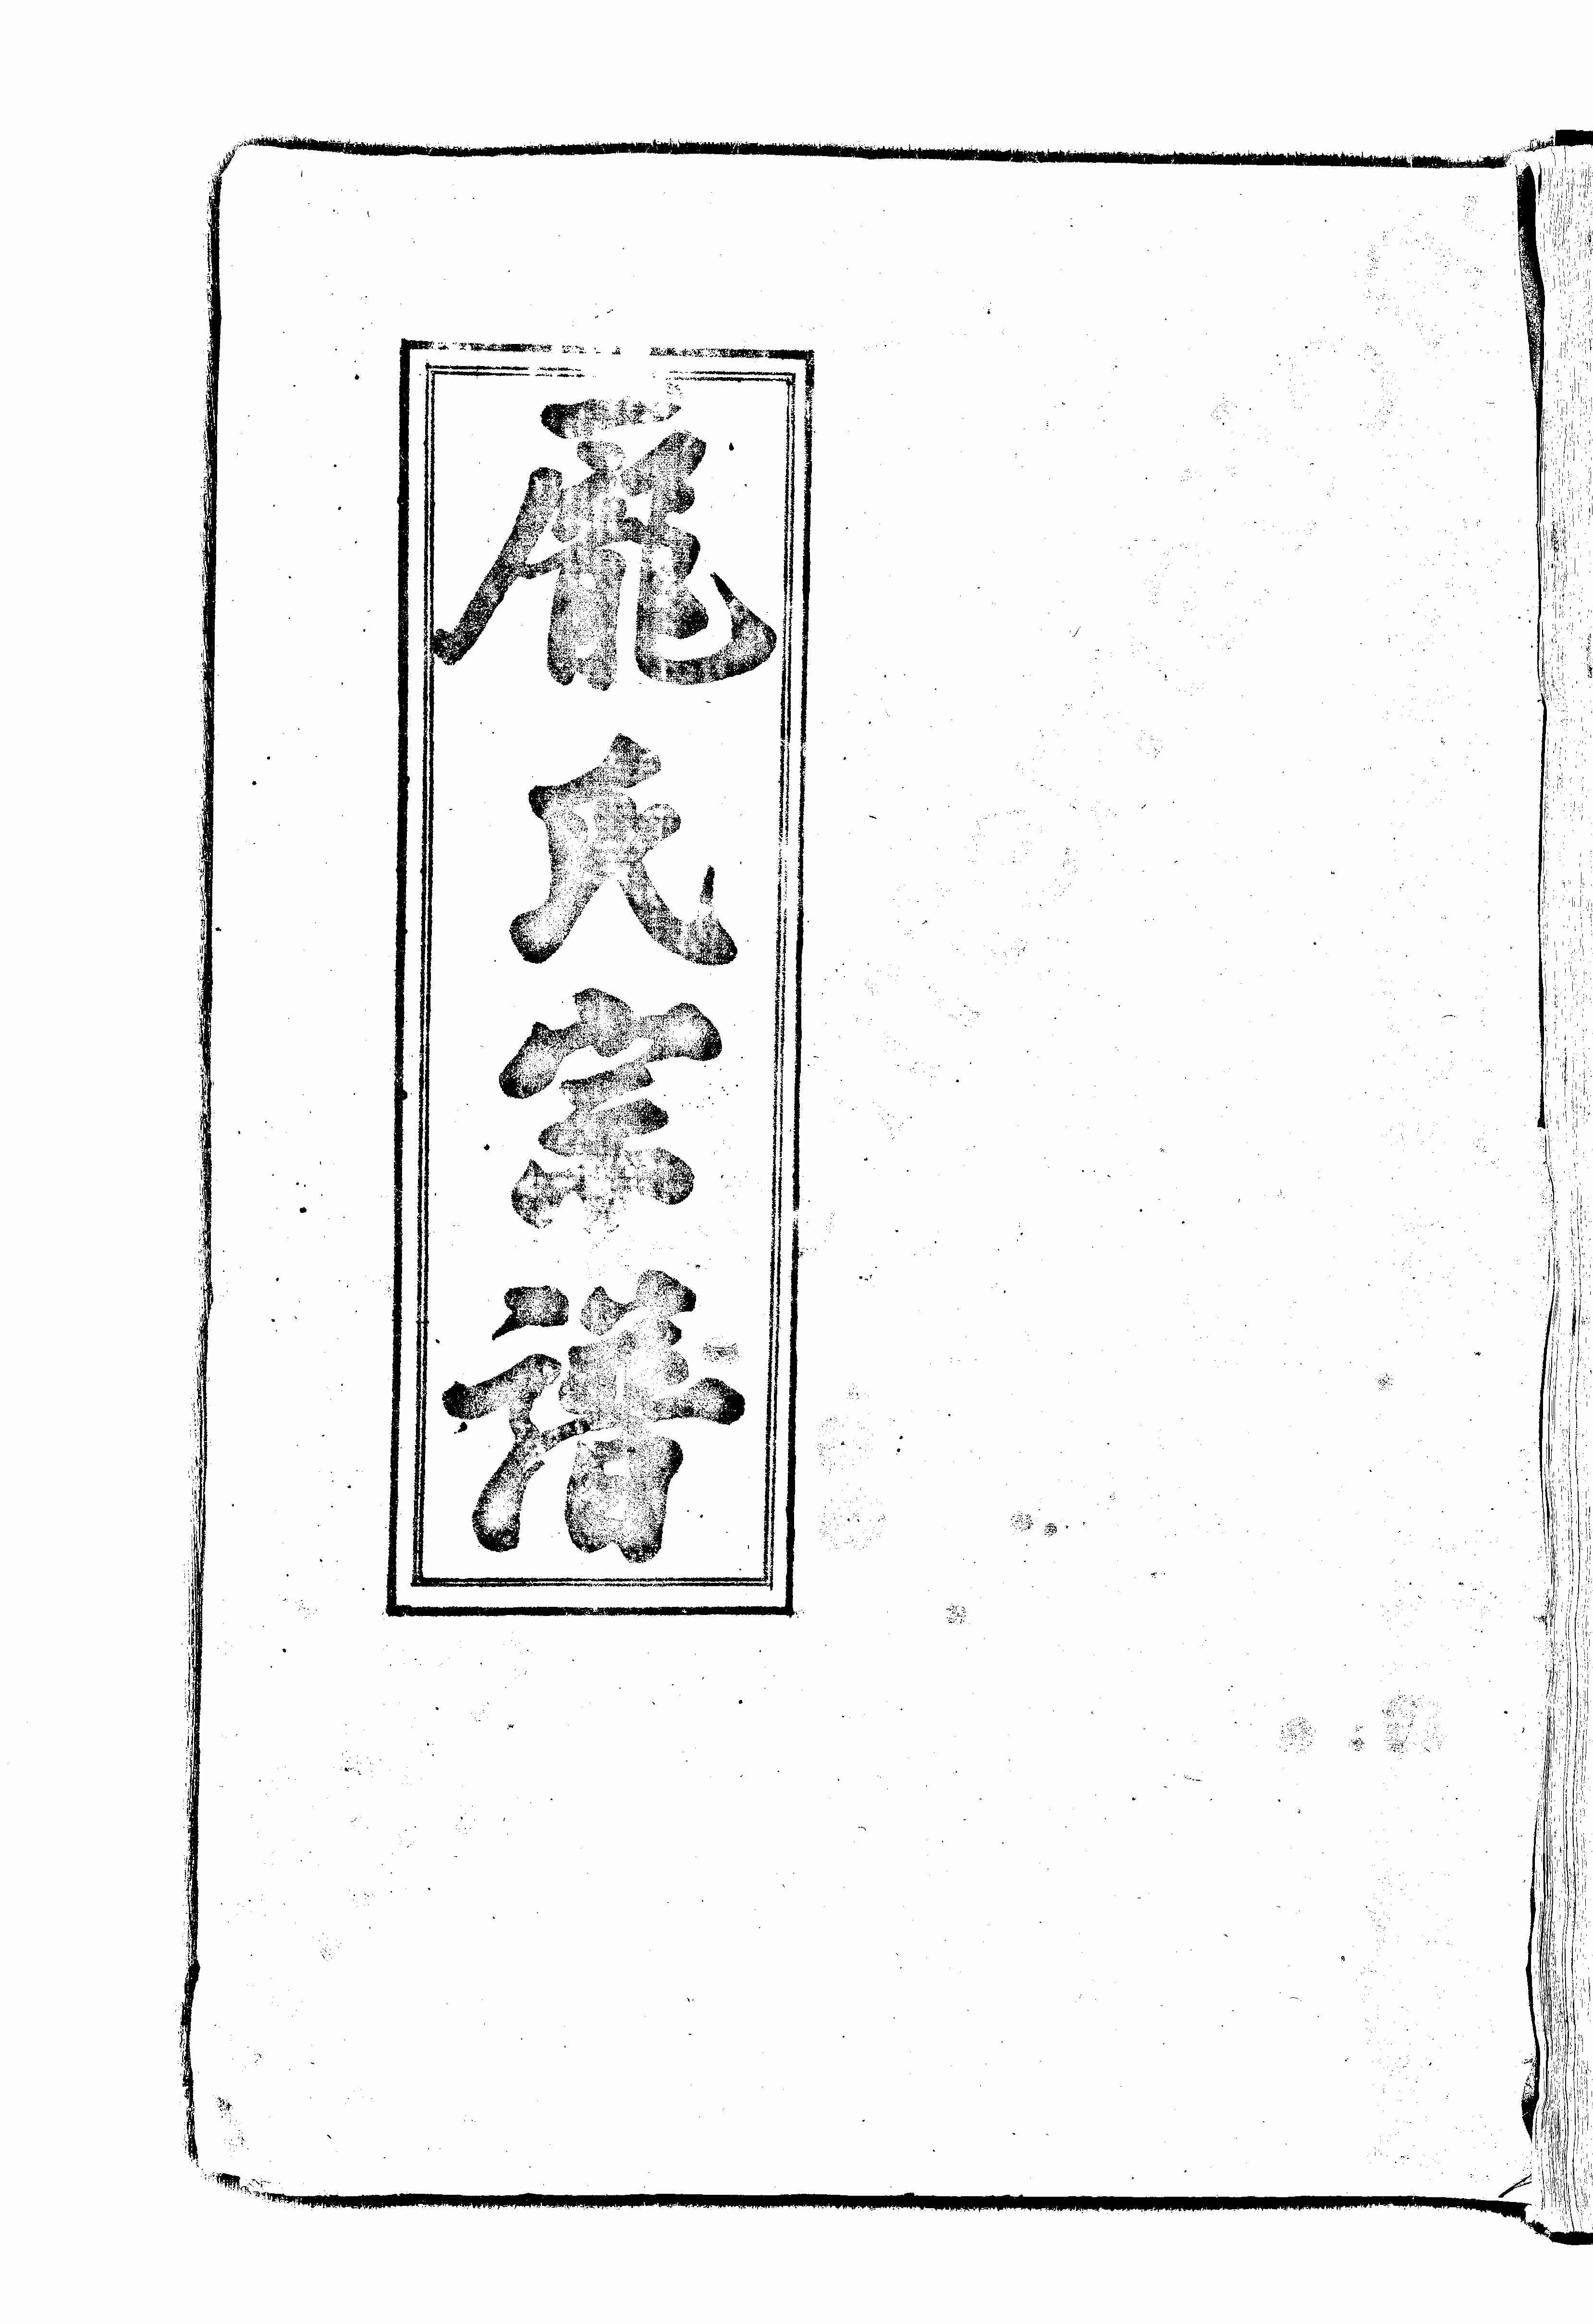 龐氏宗譜